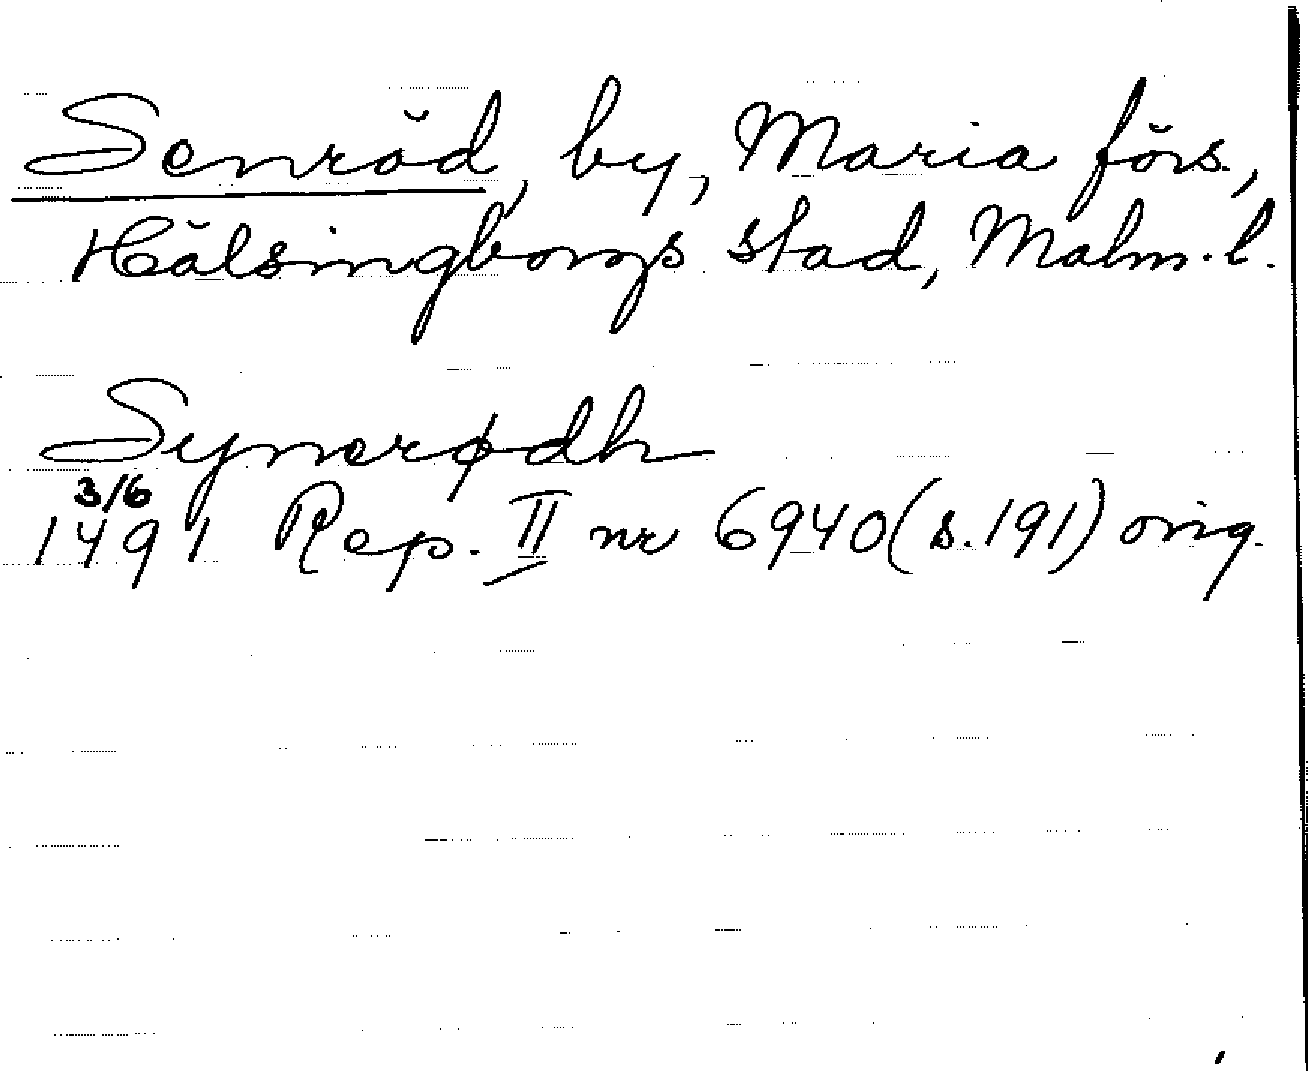 Senröd, by, Maria förs.,
Hälsingborgs stad, Malm. l.
Synerødh
3/6
1491 Rep. II nr 6940 (s. 191) orig.